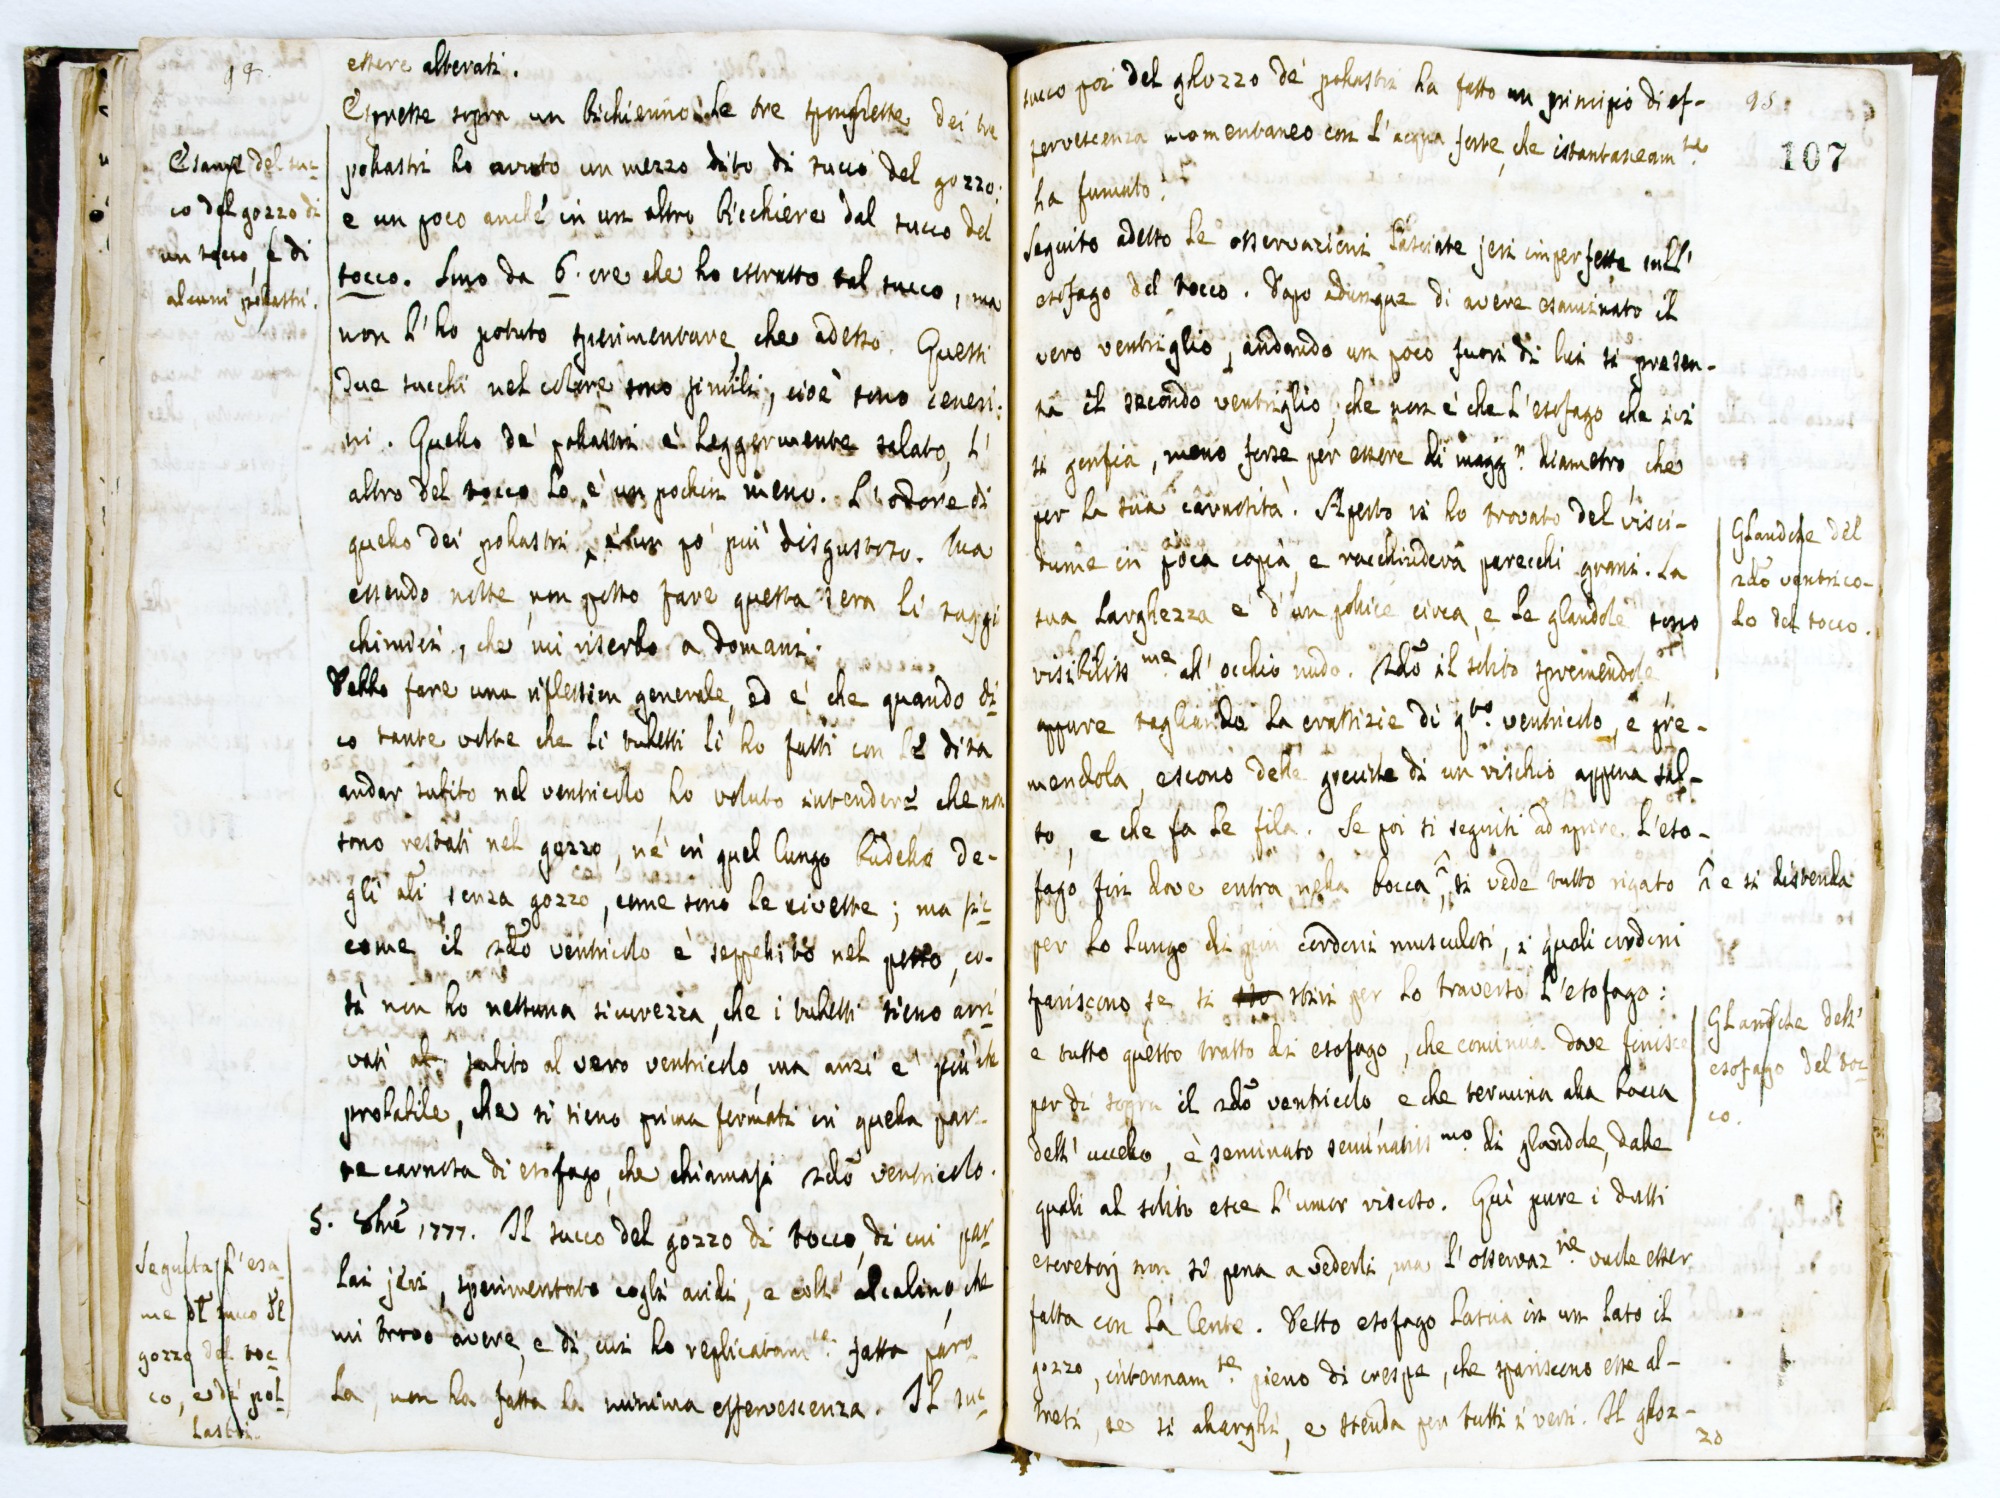 94.
essere alterati.
Espresse sopra un bichierino le tre spongiette dei tre
pollastri ho avuto un mezzo dito di succo del gozzo:
e un poco anche in un altro bicchiere dal succo del
tocco. Sono da 6. ore che ho estratto tal succo, ma
non l'ho potuto sperimentare, che adesso. Questi
due succhi nel colore sono simili, cioè sono ceneri:
ni. Quello de' pollastri è leggermente salato, l'
altro del tocco lo è un pochin meno. L'odore di
quello dei pollastri è un pò più disgustoso. Ma
essendo notte, non posso fare questa sera li saggi
chimici, che mi riserbo a domani.
Debbo fare una riflession generale, ed è che quando di
co tante volte che li tubetti li ho fatti con le dita
andar subito nel ventricolo ho voluto intendere che non
sono restati nel gozzo, nè in quel lungo budello de-
gli atri senza gozzo, come sono le civette; ma sic
come il 2do ventricolo è seppellito nel petto, co-
sì non ho nessuna sicurezza, che i tubetti sieno arri
vati al subito al vero ventricolo, ma anzi è più che
probabile, che si sieno prima fermati in quella par-
te carnosa di esofago, che chiamasi 2do ventricolo.
5. 8bre 1777. Il succo del gozzo di tocco, di cui par
lai jeri, sperimentato cogli acidi, e coll' alcalino, che
mi trovo avere, e di cui ho replicatamte. fatta paro
la, non ha fatta la minima effervescenza. Il suc
Esame del suc-
co del gozzo di
un tocco, e di
alcuni pollastri.
Seguita l'esa-
me del succo del
gozzo del toc-
co, e de' pol
lastri.
95.
107
succo poi del ghozzo de' pollastri ha fatto un principio di ef-
fervescenza momentaneo con l'acqua forte, che istantaneamte.
ha fumato.
Seguito adesso le osservazioni lasciate jeri imperfette sull'
esofago del tocco. Dopo adunque di avere esaminato il
vero ventriglio, andando un poco fuori di lui si presen-
ta il secondo ventriglio, che non è che l'esofago che ivi
si gonfia, meno forse per essere di maggr. diametro, che
per la sua carnosità. Aperto vi ho trovato del visci-
dume in poca copia, e racchiudeva parecchi grani. La
sua larghezza è d'un pollice circa, e le glandole sono
visibilissme. all' occhio nudo. 2do il solito spremendole
oppure tagliando la crassizie di qto. ventricolo, e pre-
mendola, escono delle gocciole di un vischio appena sal-
so, e che fa le fila. Se poi si seguiti ad aprire l'eso-
fago fin dove entra nella bocca, si vede tutto rigato
e si distenda
per lo lungo di più cordoni musculosi, i quali cordoni
spariscono se si stiri per lo traverso l'esofago:
e tutto questo tratto di esofago, che comincia dove finisce
per di sopra il 2do ventricolo e che termina alla bocca
dell' uccello, è seminato seminatissmo. di glandole, dalle
quali al solito esce l'umor viscoso. Quì pure i dutti
escretorj non si pena a vederli, ma l'osservazne. vuole esser
fatta con la lente. Detto esofago lascia in un lato il
gozzo, internamte. pieno di crespe, che spariscono esse al-
tresì, se si allarghi, e stenda per tutti i versi. Il gloz-
zo
Glandole del
2do ventrico-
lo del tocco.
Glandole dell'
esofago del toc-
co.